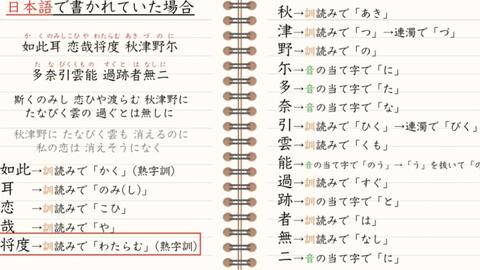 日本語で書かれていた場合
か く のみしこひ や わたらむ あき づ の に
如此耳 恋哉将度 秋津野尓
た な びくくもの すぐと は なしに
多奈引雲能 過跡者無二
斯くのみし 恋ひや渡らむ 秋津野に
たなびく雲の 過ぐとは無しに
秋津野に たなびく雲も 消えるのに
私の恋は 消えそうになく
如此→訓読みで「かく」(熟字訓)
耳 →訓読みで「のみ(し)」
恋 →訓読みで「こひ」
哉 →訓読みで「や」
将度→訓読みで「わたらむ」(熟字訓)
秋→訓読みで「あき」
津→訓読みで「つ」→連濁で「づ」
野→訓読みで「の」
尓→音の当て字で「に」
多→音の当て字で「た」
奈→音の当て字で「な」
引→訓読みで「ひく」→連濁で「びく」
雲→訓読みで「くも」
能→音の当て字で「のう」→「う」を抜いて「の
過→訓読みで「すぐ」
跡→訓読みで「と」
者→訓読みで「は」
無→訓読みで「なし」
二→音の当て字で「に」